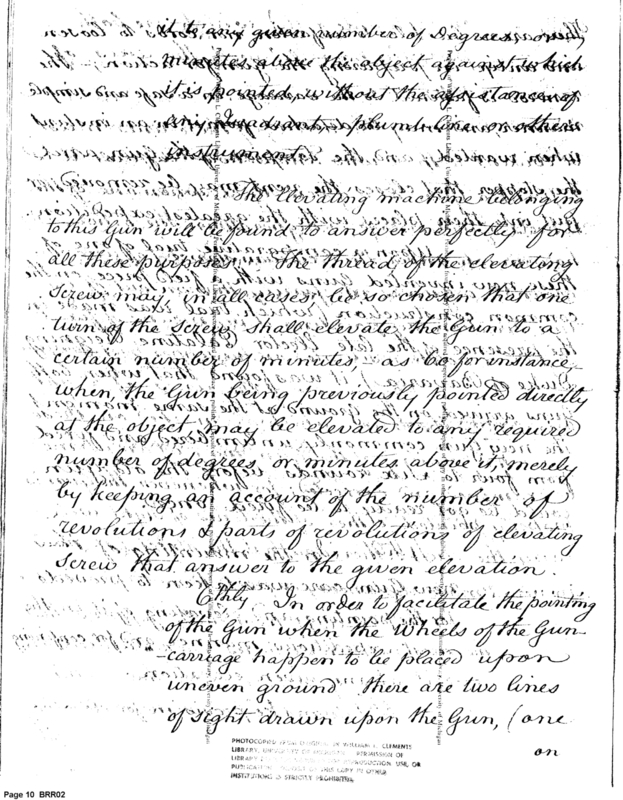 it to any given number of Degrees or
minutes above the object against which
it is pointed without the assistance of
any Quadrant, plumb line or other
instrument.
The Elevating machine belonging
to this Gun will be found to answer perfectly for
all these purposes. The thread of the elevating
Screw may, in all cases be so chosen that one
turn of the Screw shall elevate the Gun to a
certain number of minutes, – as 60 for instance,
when, the Gun being previously pointed directly
at the object may be elevated to any required
number of degrees, or minutes above it, merely
by keeping an account of the number of
revolutions & parts of revolutions of elevating
Screw that answer to the given elevation.
6thly In order to facilitate the pointing
of the Gun when the Wheels of the Gun-
-carriage happen to be placed upon
uneven ground there are two lines
of sight drawn upon the Gun, (one
on
PHOTOCOPIED FROM ORIGINAL IN WILLIAM L. CLEMENTS
LIBRARY, UNIVERSITY OF MICHIGAN. PERMISSION OF
LIBRARY REPRODUCTION USE, OR
PUBLICATION. OF THIS COPY IN OTHER
INSTITUTIONS IS STRICTLY PROHIBITED.
Page 10 BRR02